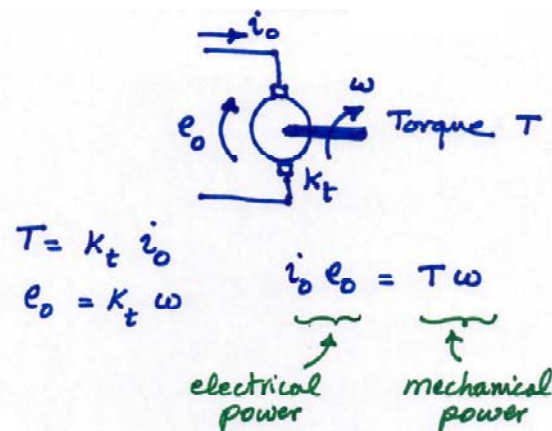 i₀
ω
e₀
Torque T
K_t
T = K_t i₀
e₀ = K_t ω
i₀ e₀ = T ω
electrical power
mechanical power